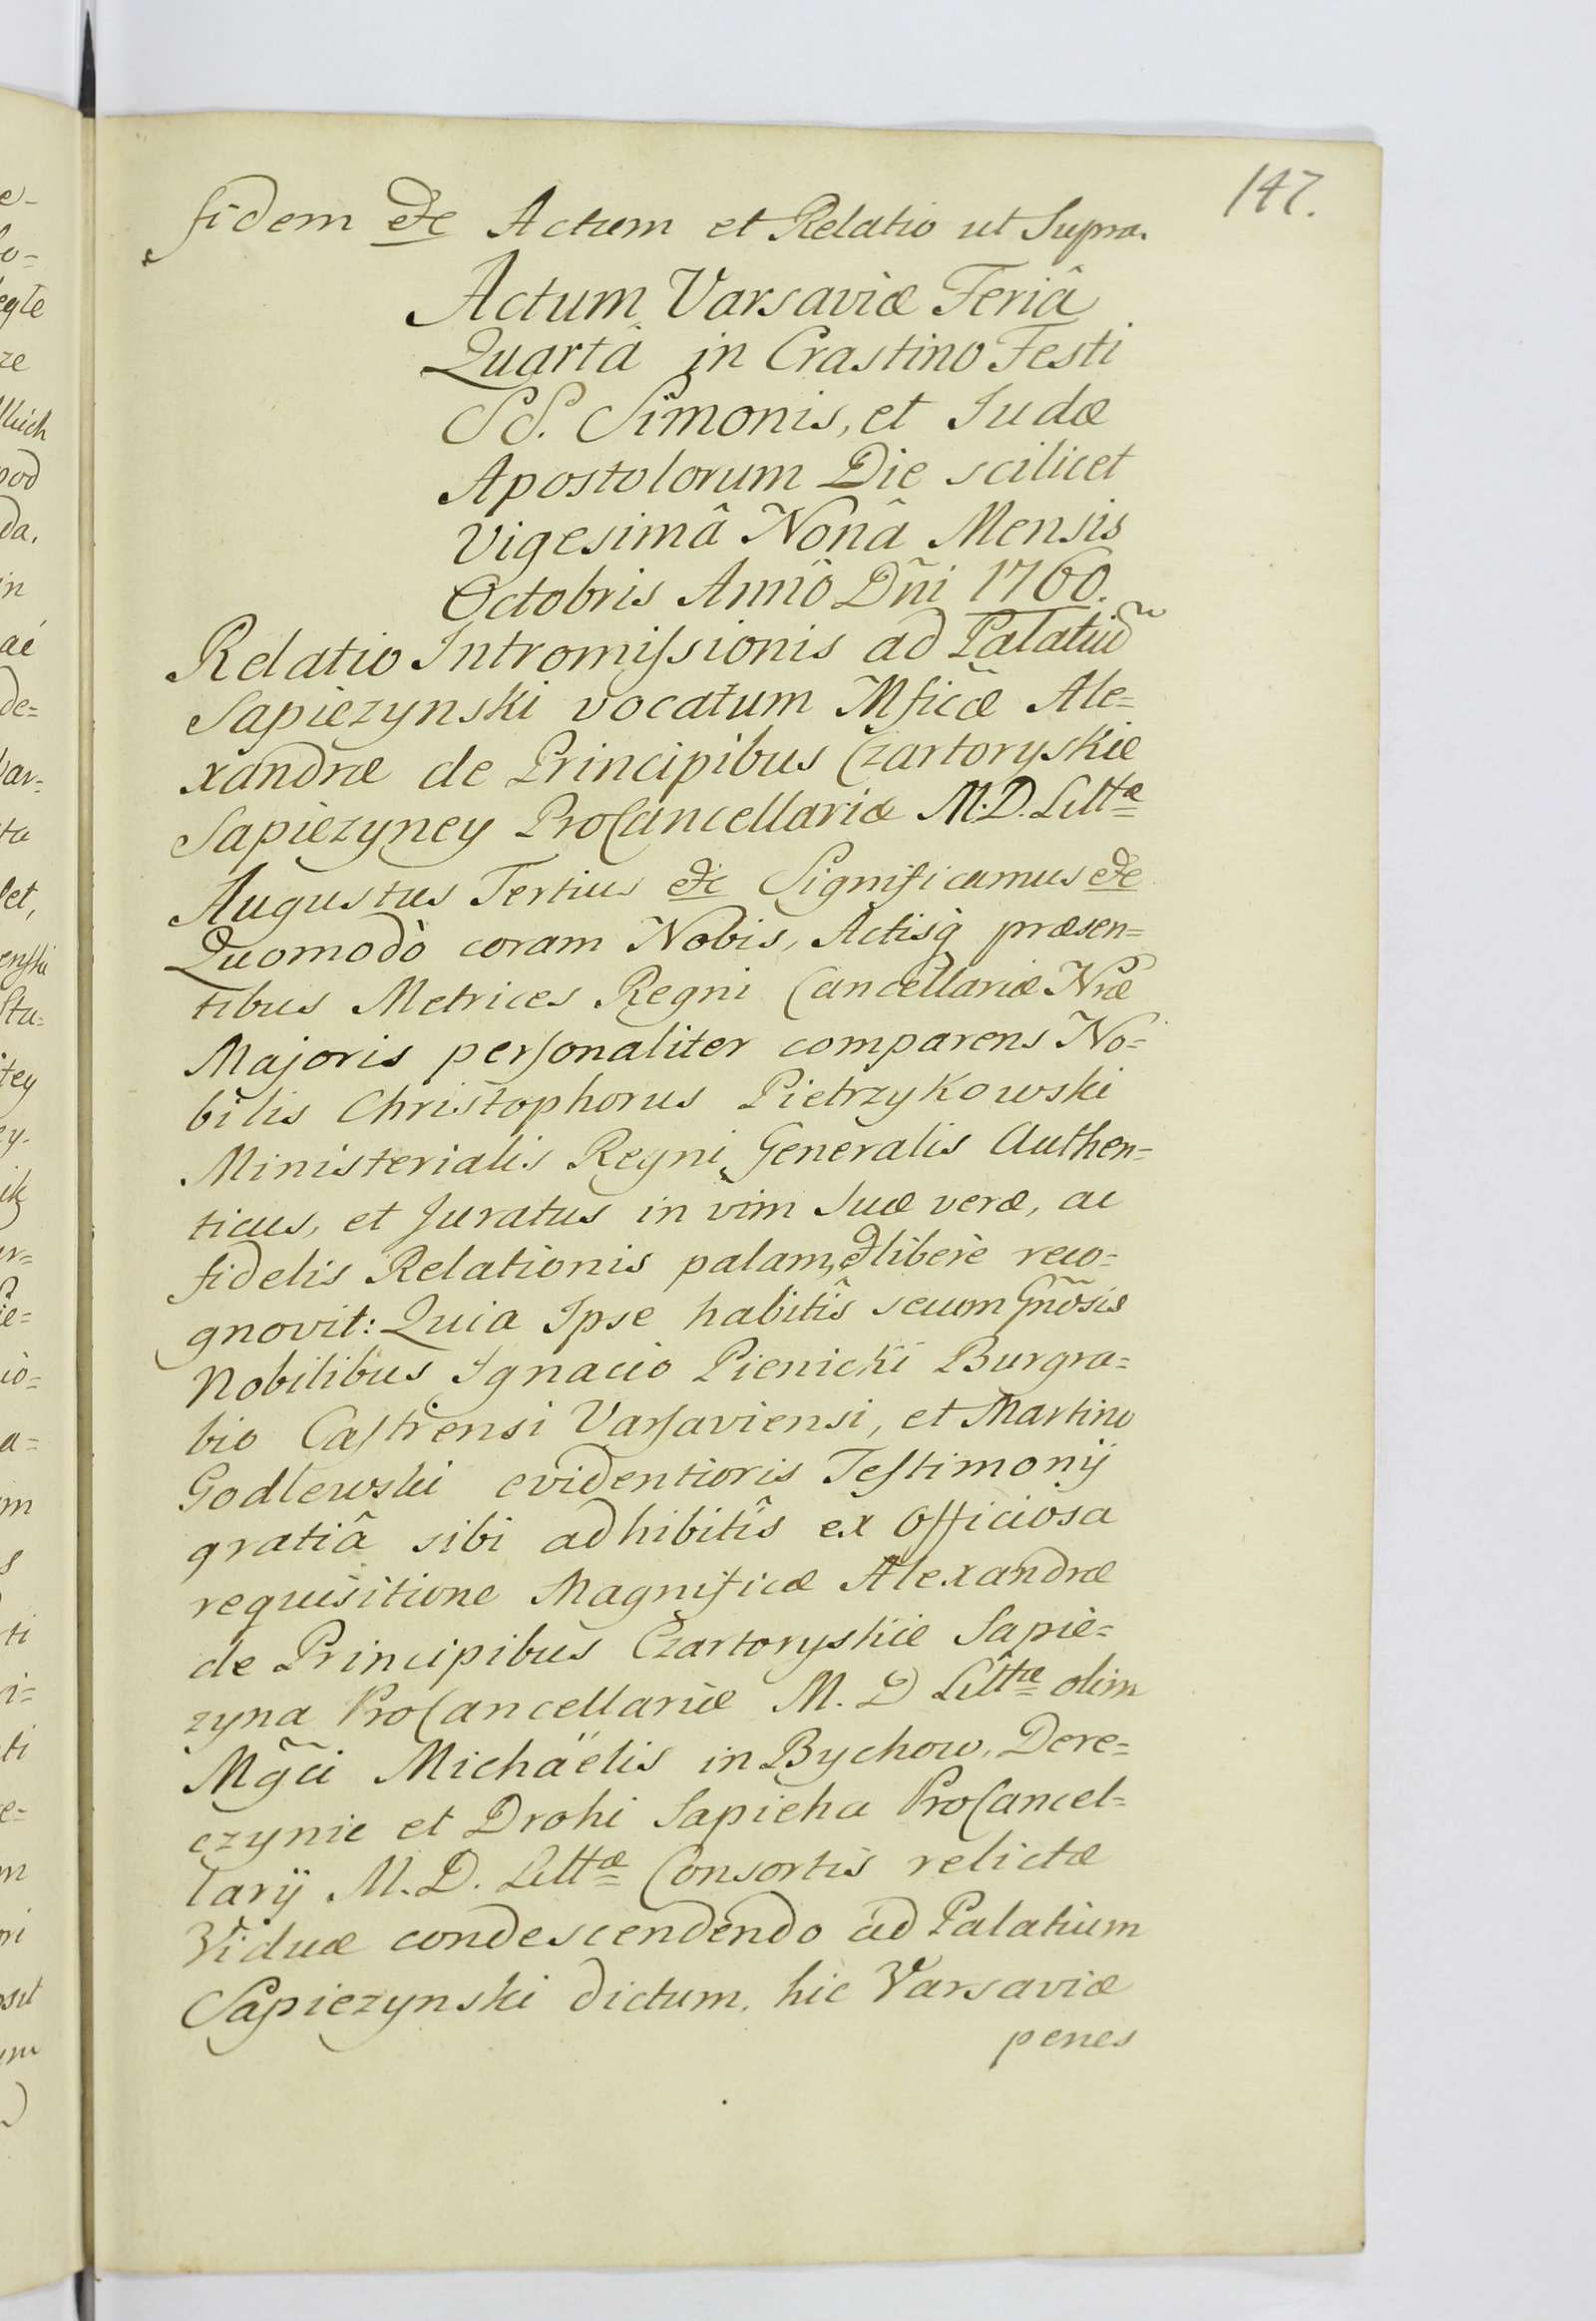 147.
fidem etc Actum et Relatio ut Supra.
Actum Varsaviæ Feriâ
Quartâ in Crastino Festi
SS. Simonis, et Judæ
Apostolorum Die scilicet
Vigesimâ Nonâ Mensis
Octobris Annô Dñi 1760.
Relatio Intromissionis ad Palatiũ
Sapiezynski vocatum Mficæ Ale=
xandræ de Principibus Czartoryskie
Sapiezyney ProCancellariæ M.D. Littæ
Augustus Tertius etc Significamus etc
Quomodò coram Nobis, Actisq præsen=
tibus Metrices Regni Cancellariæ Nræ
Majoris personaliter comparens No=
bilis Christophorus Pietrzykowski
Ministerialis Regni Generalis Authen=
ticus, et Juratus in vim suæ veræ, ac
fidelis Relationis palam, et liberè reco=
gnovit: Quia Ipse habitîs secum Gñosis
Nobilibus Ignacio Pienicki Burgra=
bio Castrensi Varsaviensi, et Martino
Godlewski evidentioris Testimonÿ
gratiâ sibi adhibitîs ex officiosa
requisitione Magnificæ Alexandræ
de Principibus Czartoryskie Sapie=
zyna ProCancellariæ M. D Littæ olim
Mg̃ci Michaëlis in Bychow, Dere=
czynie et Drohi Sapieha ProCancel=
larÿ M. D. Littæ Consortis relictæ
Viduæ condescendendo ad Palatium
Sapiezynski dictum, hic Varsaviæ
penes